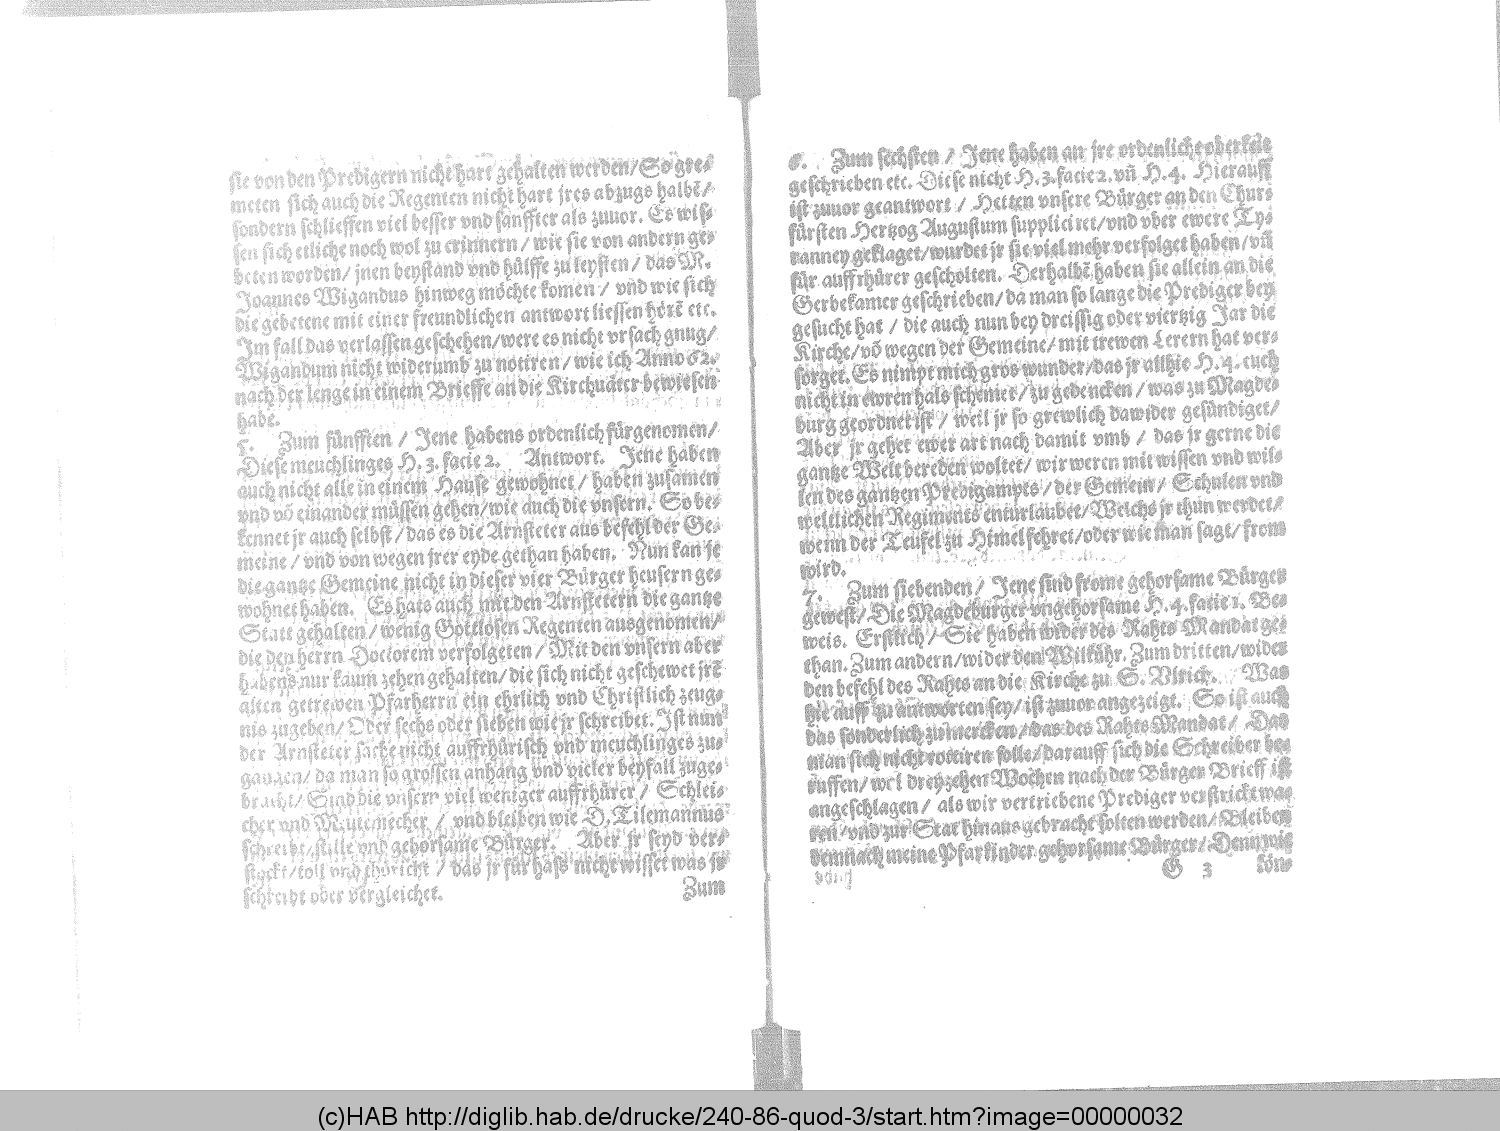 sie von den Predigern nicht hart gehalten werden/ So gre⸗
meten sich auch die Regenten nicht hart jres abzugs halbē/
sondern schlieffen viel besser vnd sänffter als zuuor. Es wis⸗
sen sich etliche noch wol zu erinnern / wie sie von andern ge⸗
beten worden/ jnen beystand vnd hülffe zu leysten / das M.
Joannes Wigandus hinweg möchte komen / vnd wie sich
die gebetene mit einer freundlichen antwort liessen hörē etc.
Im fall das verlassen geschehen/were es nicht vrsach gnug/
Wigandum nicht widerumb zu notiren / wie ich Anno 62.
nach der lenge in einem Brieffe an die Kirchuäter bewiesen
habe.
5. Zum fünfften / Jene habens ordenlich fürgenomen/
Diese meuchlinges H. 3. facie 2. Antwort. Jene haben
auch nicht alle in einem Hause gewohnet / haben zusamen
vnd vō einander müssen gehen/wie auch die vnsern. So be⸗
kennet jr auch selbst / das es die Arnsteter aus befehl der Ge⸗
meine / vnd von wegen jrer eyde gethan haben. Nun kan je
die gantze Gemeine nicht in dieser vier Bürger heusern ge⸗
wohnet haben. Es hats auch mit den Arnstetern die gantze
Statt gehalten / wenig Gottlosen Regenten ausgenomen/
die den herrn Doctorem verfolgeten / Mit den vnsern aber
habens nur kaum zehen gehalten/ die sich nicht geschewet jrē
alten getrewen Pfarherrn ein ehrlich vnd Christlich zeug⸗
nis zugeben/ Oder sechs oder sieben wie jr schreibet. Ist nun
der Arnsteter sache nicht auffrhürisch vnd meuchlinges zu⸗
gangen/ da man so grossen anhang vnd vieler beyfall zuge⸗
bracht/ Sind die vnsern viel weniger auffrhürer / Schlei⸗
cher vnd Meutemecher / vnd bleiben wie D. Tilemannus
schreibt, stille vnd gehorsame Bürger. Aber jr seyd ver⸗
stockt/toll vnd thöricht / das jr für haß nicht wisset was jr
schreibt oder vergleichet.
Zum
6. Zum sechsten / Jene haben an jre ordenliche oberkeit
geschrieben etc. Diese nicht H. 3. facie 2. vñ H. 4. Hierauff
ist zuuor geantwort / Hetten vnsere Bürger an den Chur⸗
fürsten Hertzog Augustum suppliciret/vnd vber ewere Ty⸗
ranney geklaget/wurdet jr sie viel mehr verfolget haben/vñ
für auffrhürer gescholten. Derhalbē haben sie allein an die
Gerbekamer geschrieben/ da man so lange die Prediger bey
gesucht hat / die auch nun bey dreissig oder viertzig Jar die
Kirche/vō wegen der Gemeine/ mit trewen Lerern hat ver⸗
sorget. Es nimpt mich gros wunder/das jr allhie H. 4. euch
nicht in ewren hals schemet / zu gedencken / was zu Magde⸗
burg geordnet ist / weil jr so grewlich dawider gesündiget/
Aber jr gehet ewer art nach damit vmb / das jr gerne die
gantze Welt bereden woltet/ wir weren mit wissen vnd wil⸗
len des gantzen Predigampts / der Gemein / Schulen vnd
weltlichen Regiments enturlaubet/Welchs jr thun werdet/
wenn der Teufel zu Himel fehret/oder wie man sagt/ from
wird.
7. Zum siebenden / Jene sind frome gehorsame Bürger
gewest/ Die Magdeburger vngehorsame H. 4. facie 1. Be⸗
weis. Erstlich / Sie haben wider des Rahts Mandat ge⸗
than. Zum andern/wider den Wilkühr. Zum dritten/wider
den befehl des Rahts an die Kirche zu S. Vlrich. Was
hie auff zu antworten sey/ ist zuuor angezeigt. So ist auch
das sonderlich zu mercken/ das des Rahts Mandat / Das
man sich nicht rottiren solle/ darauff sich die Schreiber be⸗
ruffen/ wol dreyzehen Wochen nach der Bürger Brieff ist
angeschlagen / als wir vertriebene Prediger verstrickt wa⸗
ren/ vnd zur Stat hinaus gebracht solten werden/ Bleiben
demnach meine Pfarkinder gehorsame Bürger/ Denn wie
G 3 köns